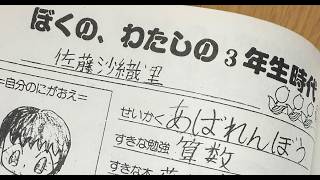 ぼくの、わたしの3年生時代
佐藤沙織里
=自分のにがおえ=
せいかく あばれんぼう
すきな勉強 算数
すきな本